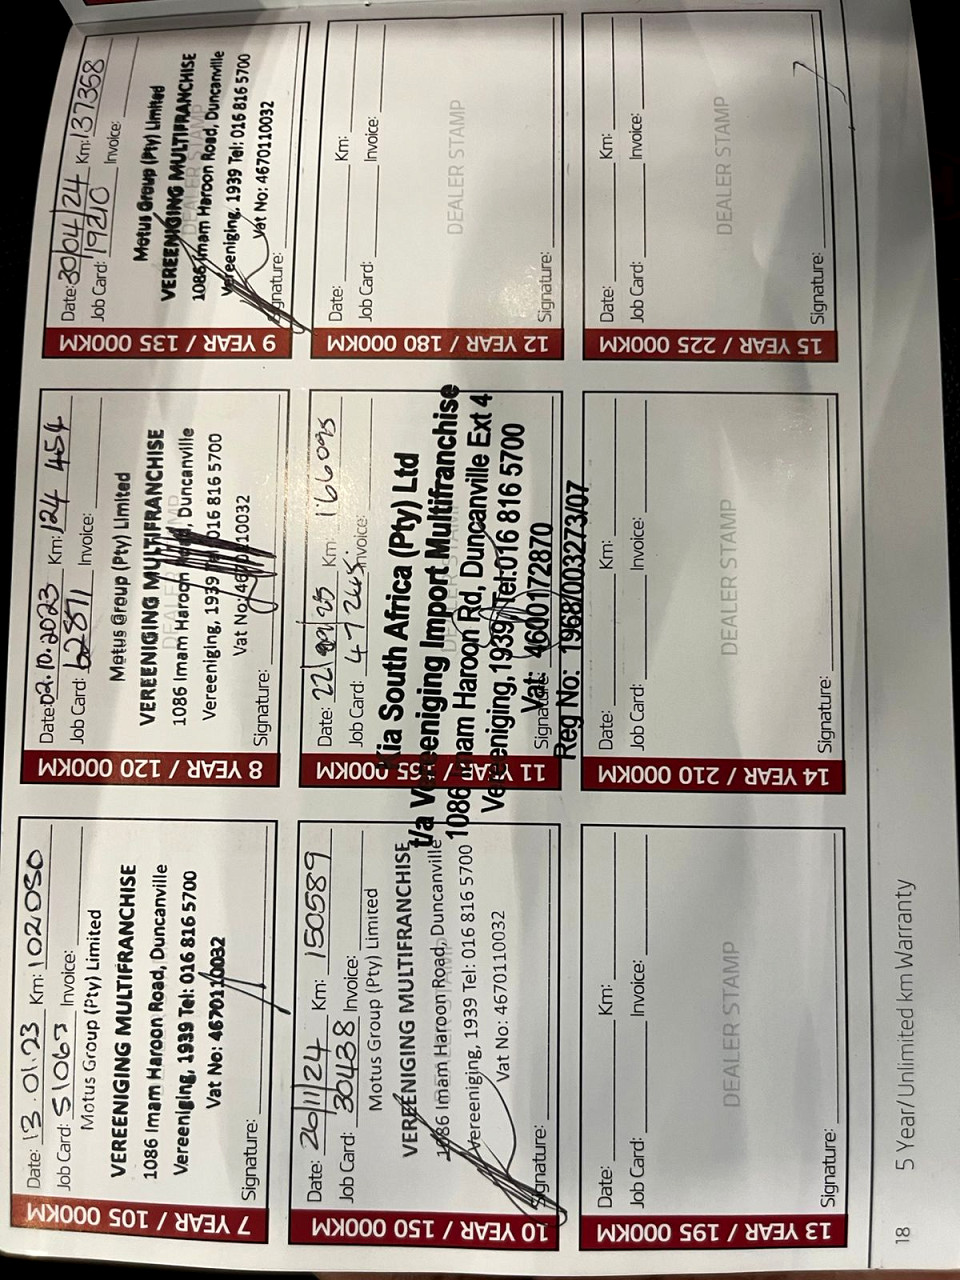 7 YEAR / 105 000KM
Date: 13.01.23 Km: 102050
Job Card: 51067 Invoice:
Motus Group (Pty) Limited
VEREENIGING MULTIFRANCHISE
1086 Imam Haroon Road, Duncanville
Vereeniging, 1939 Tel: 016 816 5700
Vat No: 4670110032
Signature:
8 YEAR / 120 000KM
Date: 02.10.2023 Km: 124 454
Job Card: 62871 Invoice:
Motus Group (Pty) Limited
VEREENIGING MULTIFRANCHISE
1086 Imam Haroon Road, Duncanville
Vereeniging, 1939 Tel: 016 816 5700
Vat No: 4670110032
Signature:
9 YEAR / 135 000KM
Date: 30/04/24 Km: 137368
Job Card: 19210 Invoice:
Motus Group (Pty) Limited
VEREENIGING MULTIFRANCHISE
DEALER STAMP
1086 Imam Haroon Road, Duncanville
Vereeniging, 1939 Tel: 016 816 5700
Vat No: 4670110032
Signature:
10 YEAR / 150 000KM
Date: 26/11/24 Km: 150589
Job Card: 30438 Invoice:
Motus Group (Pty) Limited
VEREENIGING MULTIFRANCHISE
1086 Imam Haroon Road, Duncanville
Vereeniging, 1939 Tel: 016 816 5700
Vat No: 4670110032
Signature:
11 YEAR / 165 000KM
Date: 22/ /25 Km: 166095
Job Card: 47245. Invoice:
Kia South Africa (Pty) Ltd
t/a Vereeniging Import Multifranchise
1086 Imam Haroon Rd, Duncanville Ext 4
Vereeniging, 1939 Tel: 016 816 5700
Signature:
Vat: 4600172870
Reg No: 1968/003273/07
12 YEAR / 180 000KM
Date: Km:
Job Card: Invoice:
DEALER STAMP
Signature:
13 YEAR / 195 000KM
Date: Km:
Job Card: Invoice:
DEALER STAMP
Signature:
14 YEAR / 210 000KM
Date: Km:
Job Card: Invoice:
DEALER STAMP
Signature:
15 YEAR / 225 000KM
Date: Km:
Job Card: Invoice:
DEALER STAMP
Signature:
18 5 Year/Unlimited km Warranty